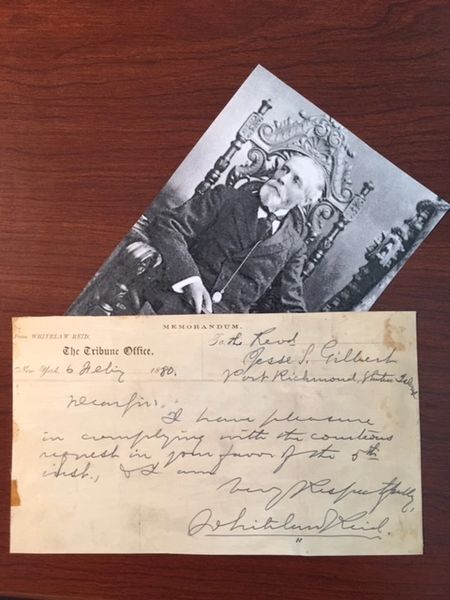 MEMORANDUM.
From WHITELAW REID.
The Tribune Office.
New York, 6 Feb'y 1880.
To the Revd
Jesse S. Gilbert
Port Richmond, Staten Island
Dear Sir:
I have pleasure
in complying with the courteous
request in your favor of the 5th
inst., & I am
Very Respectfully,
Whitelaw Reid.